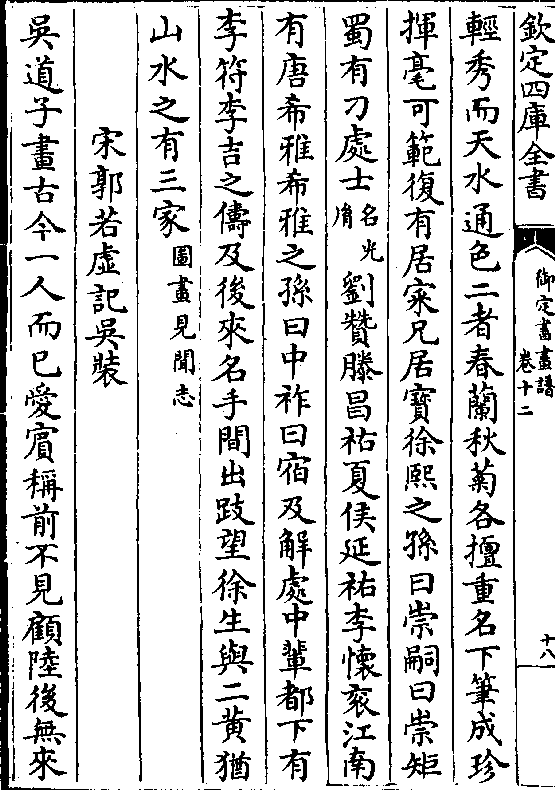 欽定四庫全書
御定書畫譜
卷十二
十八
輕秀而天水通色二者春蘭秋菊各擅重名下筆成珍
揮毫可範復有居寀兄居寶徐熙之孫曰崇嗣曰崇矩
蜀有刀處士名光胤劉贊滕昌祐夏侯延祐李懷衮江南
有唐希雅希雅之孫曰中祚曰宿及解處中輩都下有
李符李吉之儔及後來名手間出跂望徐生與二黄猶
山水之有三家圖畫見聞志
宋郭若虛記吳裝
吳道子畫古今一人而已愛賔稱前不見顧陸後無來